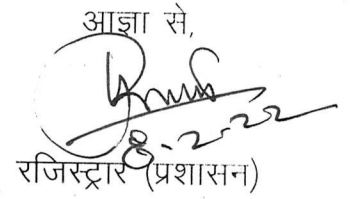 आज्ञा से,
8-2-22
रजिस्ट्रार (प्रशासन)